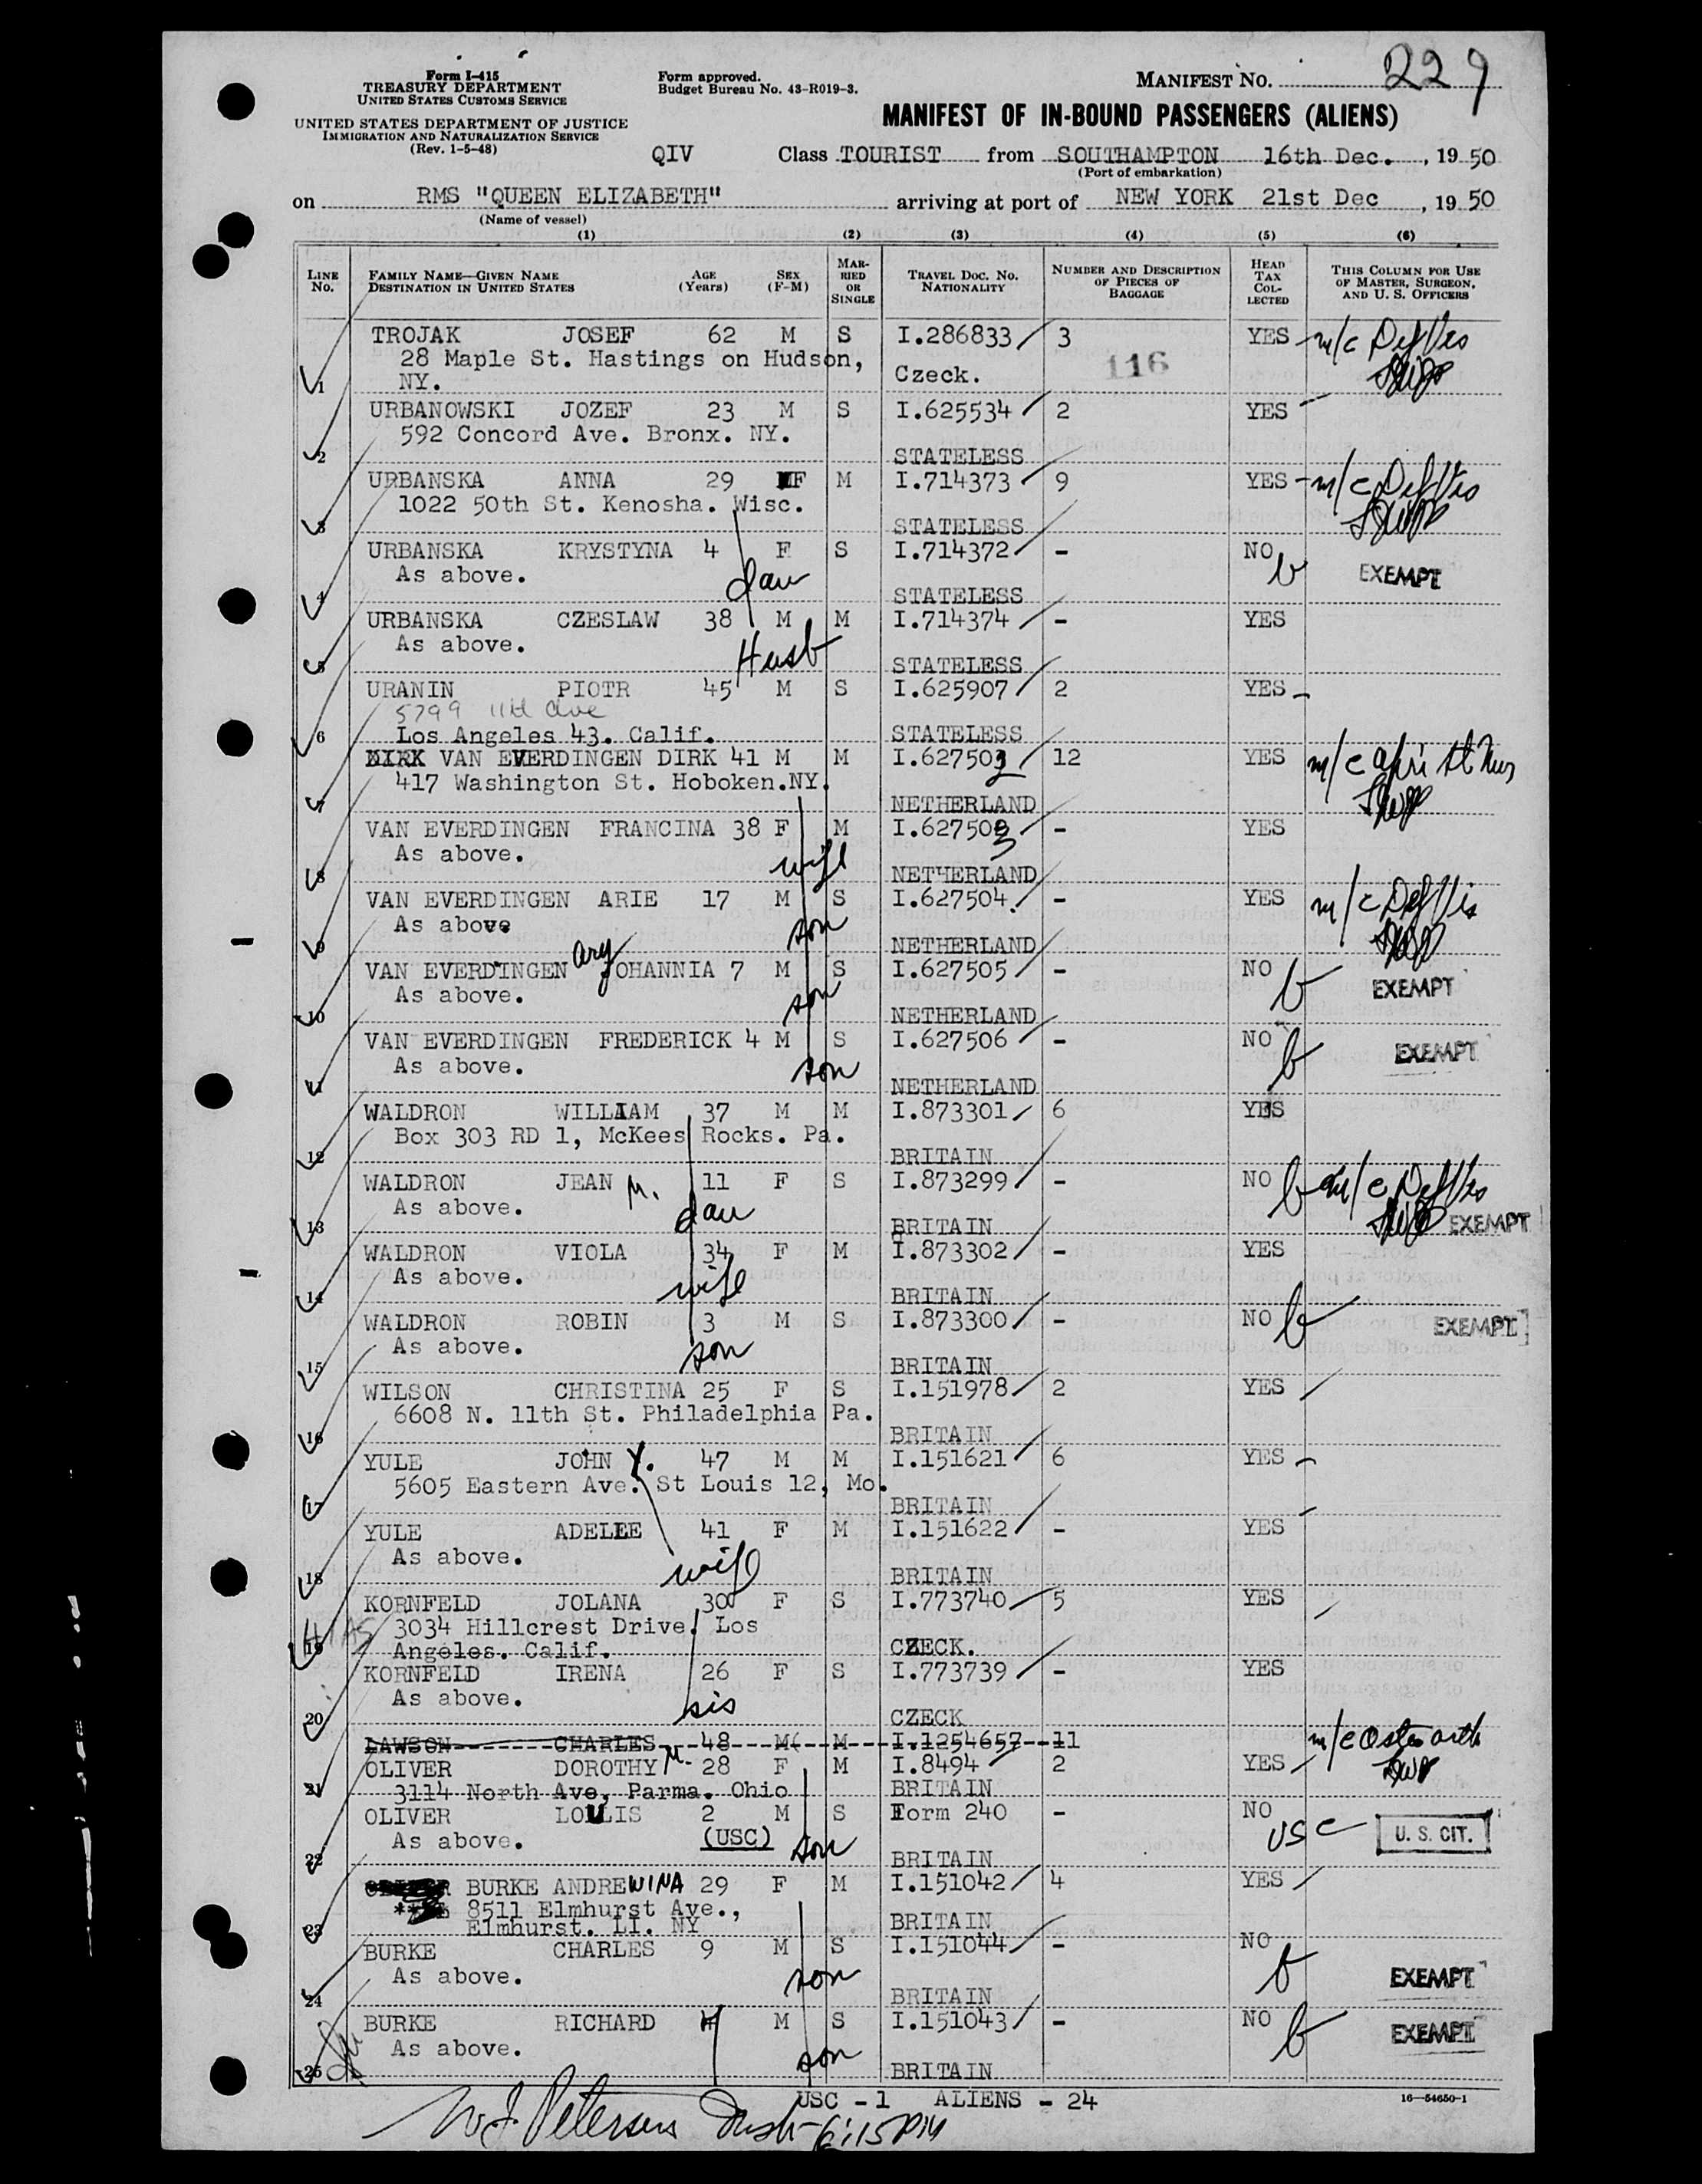 Form I-415
TREASURY DEPARTMENT
UNITED STATES CUSTOMS SERVICE
UNITED STATES DEPARTMENT OF JUSTICE
IMMIGRATION AND NATURALIZATION SERVICE
(Rev. 1-5-48)
Form approved.
Budget Bureau No. 43-R019-3.
MANIFEST NO. 229
MANIFEST OF IN-BOUND PASSENGERS (ALIENS)
QIV Class TOURIST from SOUTHAMPTON 16th Dec. , 19 50
(Port of embarkation)
on RMS "QUEEN ELIZABETH" arriving at port of NEW YORK 21st Dec , 19 50
(Name of vessel)
(1) (2) (3) (4) (5) (6)
LINE NO. FAMILY NAME—GIVEN NAME DESTINATION IN UNITED STATES AGE (Years) SEX (F-M) MARRIED OR SINGLE TRAVEL DOC. NO. NATIONALITY NUMBER AND DESCRIPTION OF PIECES OF BAGGAGE HEAD TAX COLLECTED THIS COLUMN FOR USE OF MASTER, SURGEON, AND U. S. OFFICERS
TROJAK JOSEF 62 M S I.286833 3 YES m/c Def Vis
28 Maple St. Hastings on Hudson, 116
1 NY. Czeck.
URBANOWSKI JOZEF 23 M S I.625534 2 YES
592 Concord Ave. Bronx. NY.
2 STATELESS
URBANSKA ANNA 29 F M I.714373 9 YES m/c Def Vis
1022 50th St. Kenosha. Wisc.
3 STATELESS
URBANSKA KRYSTYNA 4 F S I.714372 - NO
As above. dau EXEMPT
4 STATELESS
URBANSKA CZESLAW 38 M M I.714374 - YES
As above. Husb
5 STATELESS
URANIN PIOTR 45 M S I.625907 2 YES
5799 11th Ave
6 Los Angeles 43. Calif. STATELESS
DIRK VAN EVERDINGEN DIRK 41 M M I.627502 12 YES
417 Washington St. Hoboken.NY.
7 NETHERLAND
VAN EVERDINGEN FRANCINA 38 F M I.627503 - YES
As above. wife
8 NETHERLAND
VAN EVERDINGEN ARIE 17 M S I.627504. - YES m/c Def Vis
As above son
9 NETHERLAND
VAN EVERDINGEN ary JOHANNIA 7 M S I.627505 - NO
As above. son EXEMPT
10 NETHERLAND
VAN EVERDINGEN FREDERICK 4 M S I.627506 - NO
As above. son EXEMPT
11 NETHERLAND
WALDRON WILLIAM 37 M M I.873301 6 YES
Box 303 RD 1, McKees Rocks. Pa.
12 BRITAIN
WALDRON JEAN M. 11 F S I.873299 - NO m/c Def Vis
As above. dau EXEMPT
13 BRITAIN
WALDRON VIOLA 34 F M I.873302 - YES
As above. wife
14 BRITAIN
WALDRON ROBIN 3 M S I.873300 - NO EXEMPT
As above. son
15 BRITAIN
WILSON CHRISTINA 25 F S I.151978 2 YES
6608 N. 11th St. Philadelphia Pa.
16 BRITAIN
YULE JOHN Y. 47 M M I.151621 6 YES
5605 Eastern Ave. St Louis 12, Mo.
17 BRITAIN
YULE ADELEE 41 F M I.151622 - YES
As above. wife
18 BRITAIN
KORNFELD JOLANA 30 F S I.773740 5 YES
HIAS 3034 Hillcrest Drive. Los
19 Angeles. Calif. CZECK.
KORNFELD IRENA 26 F S I.773739 - YES
As above. sis
20 CZECK
LAWSON CHARLES 48 M( M I.1254657 11
OLIVER DOROTHY M. 28 F M I.8494 2 YES
21 3114 North Ave, Parma. Ohio BRITAIN
OLIVER LOUIS 2 M S Form 240 - NO
As above. (USC) son USC U. S. CIT.
22 BRITAIN
BURKE ANDREWINA 29 F M I.151042 4 YES
8511 Elmhurst Ave.,
23 Elmhurst. LI. NY BRITAIN
BURKE CHARLES 9 M S I.151044 - NO
As above. son EXEMPT
24 BRITAIN
BURKE RICHARD 7 M S I.151043 - NO
As above. son EXEMPT
25 BRITAIN
USC - 1 ALIENS - 24
16—54650-1
W J Peterson 6:15 PM